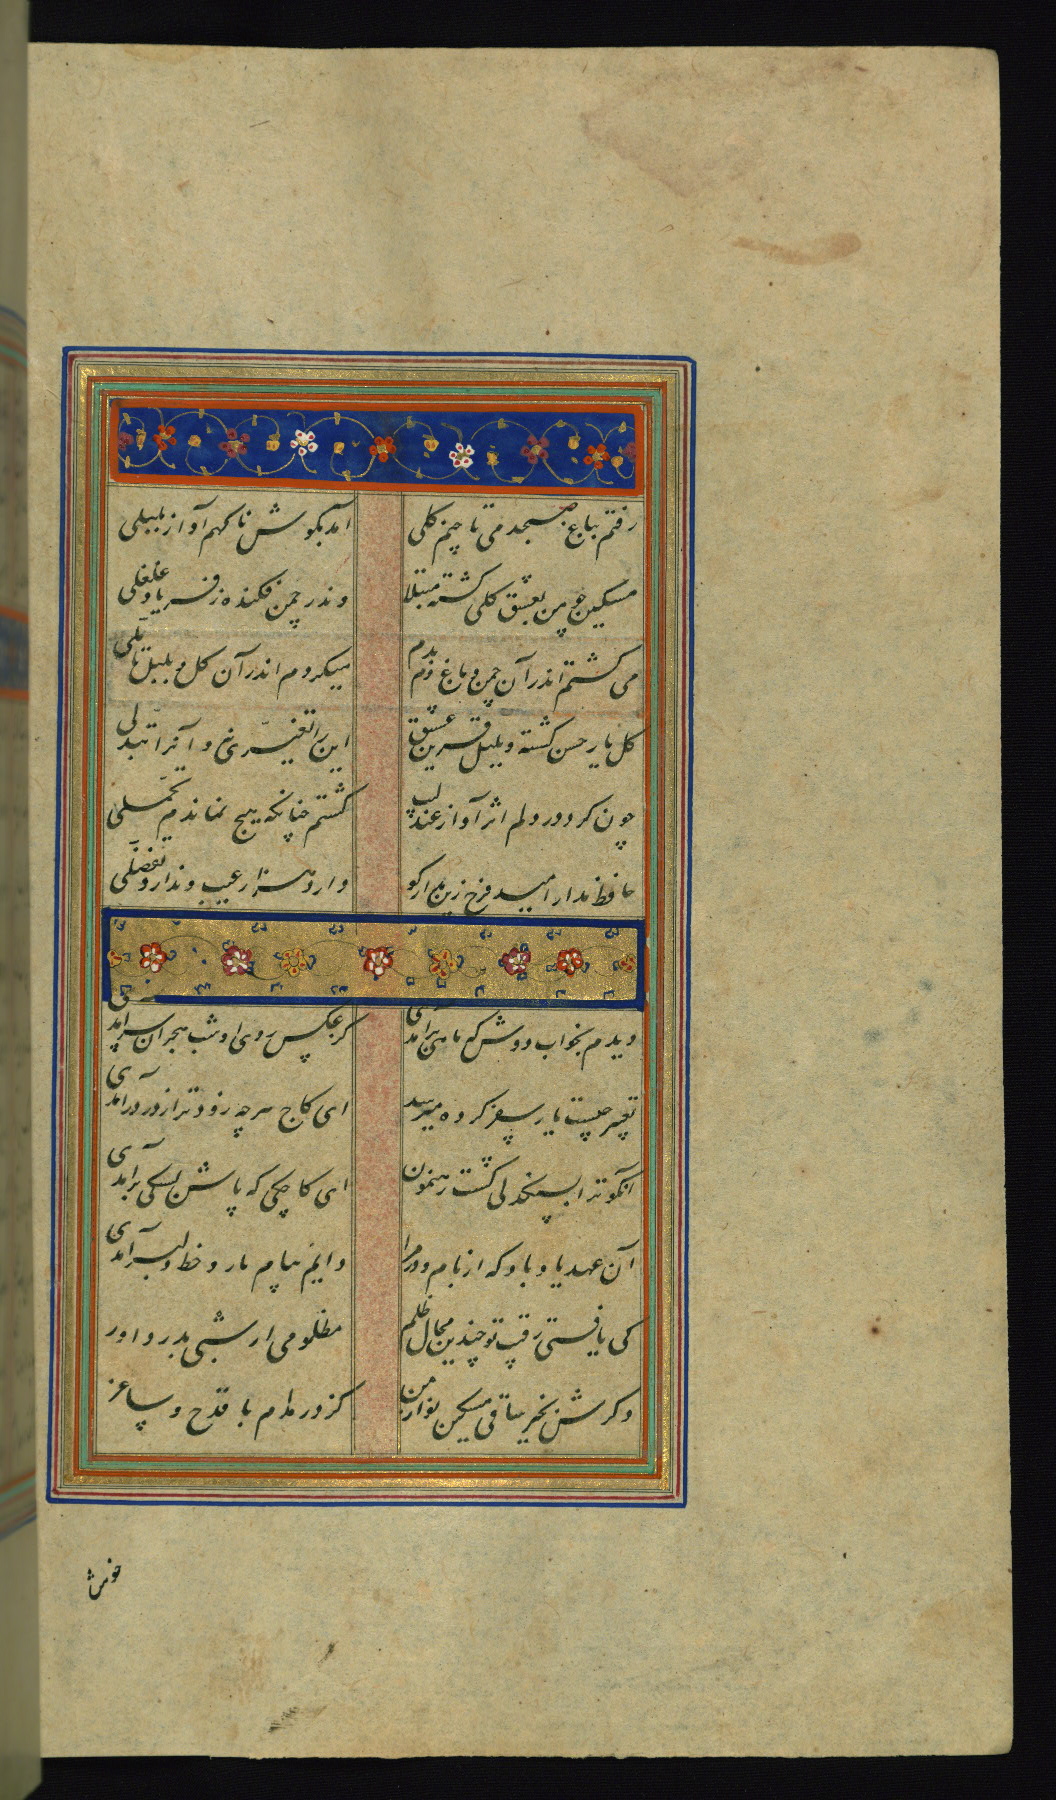 رفتم بباغ صبحدمی تا چنم کلی
آمد بکوش ناکهم آواز بلبلی
مسکین چو من بعشق کلی کشته مبتلا
وندر چمن فکنده ز فریاد غلغلی
می کشتم اندر آن چمن و باغ دم بدم
میکردم اندر آن کل و بلبل تأملی
کل یار حسن کشته و بلبل قرین عشق
این را تغیری نی و آنرا تبدلی
چون کرد در دلم اثر آواز عندلیب
کشتم چنانکه هیچ نماندم تحملی
حافظ مدار امید فرح زین مدار کو
دارد هزار عیب و ندارد تفضلی
دیدم بخواب دوش که ماهی برآمدی
کز عکس روی او شب هجران سرآمدی
تعبیر چیست یار سفر کرده میرسد
ای کاج هر چه زودتر از در درآمدی
آنکو ترا بسنکدلی کشت رهنمون
ای کاجکی که پاش بسنکی برآمدی
آن عهد یاد باد که از بام و در مرا
دایم پیام یار و خط دلبر آمدی
کی یافتی رقیب تو چندین مجال ظلم
مظلومی ار شبی بدر داور
ذکرش بخیر ساقی مسکین نواز من
کز در مدام با قدح و ساغر